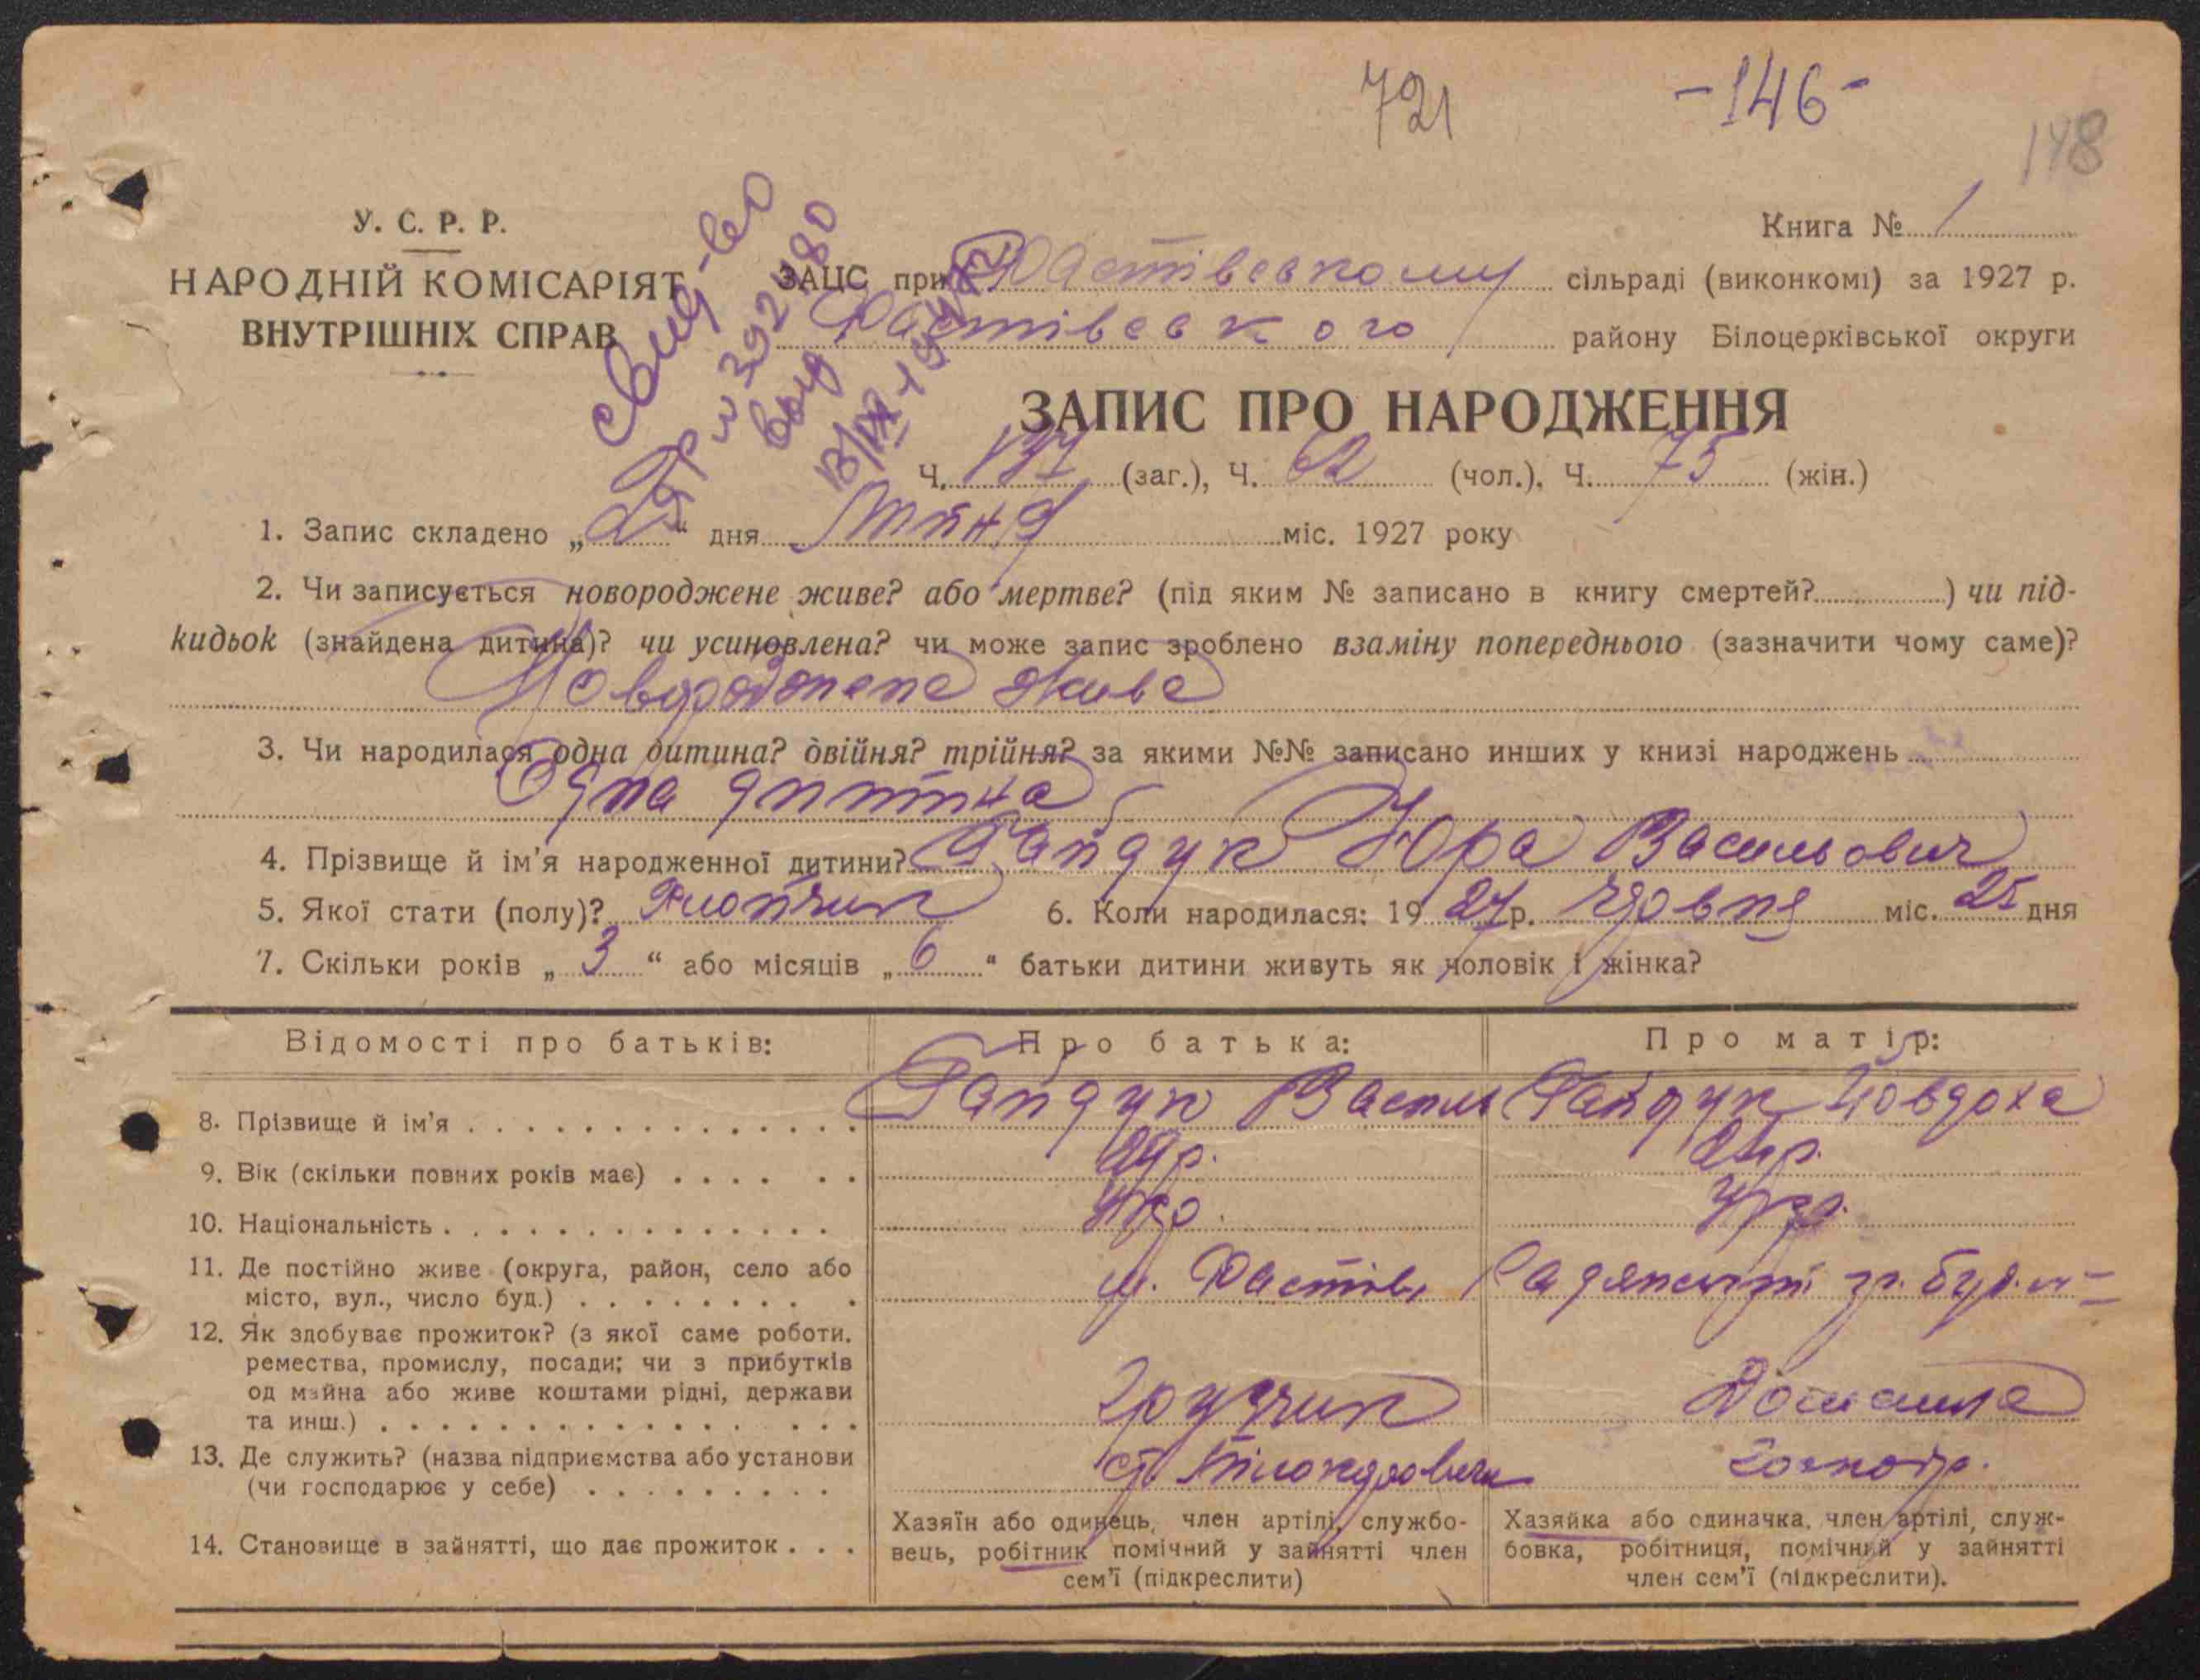 721
-146-
148
У. С. Р. Р.
НАРОДНІЙ КОМІСАРІЯТ
ВНУТРІШНІХ СПРАВ
Книга № 1
ЗАЦС при Фастівському сільраді (виконкомі) за 1927 р.
Фастівського району Білоцерківської округи
Свид-во
ЗАПИС ПРО НАРОДЖЕННЯ
Ч. 137 (заг.), Ч. 62 (чол.), Ч. 75 (жін.)
1. Запис складено „ “ дня міс. 1927 року
2. Чи записується новороджене живе? або мертве? (під яким № записано в книгу смертей? ) чи під-
кидьок (знайдена дитина)? чи усиновлена? чи може запис зроблено взаміну попереднього (зазначити чому саме)?
живе
3. Чи народилася одна дитина? двійня? трійня? за якими №№ записано инших у книзі народжень
Одна дитина
4. Прізвище й ім'я народженної дитини? Гайдук Юра Васильович
5. Якої стати (полу)? Хлопчик 6. Коли народилася: 19 27 р. Жовтня міс. 25 дня
7. Скільки років „ 3 “ або місяців „ 6 “ батьки дитини живуть як чоловік і жінка?
Відомості про батьків:
Про батька:
Про матір:
8. Прізвище й ім'я
Гайдук Василь
Гайдук Йовдоха
9. Вік (скільки повних років має)
10. Національність
Укр.
Укр.
11. Де постійно живе (округа, район, село або
місто, вул., число буд.)
м. Фастів,
12. Як здобуває прожиток? (з якої саме роботи,
ремества, промислу, посади; чи з прибутків
од майна або живе коштами рідні, держави
та инш.)
Грузчик
Домашня
13. Де служить? (назва підприємства або установи
(чи господарює у себе)
14. Становище в зайнятті, що дає прожиток
Хазяїн або одинець, член артілі, службо-
вець, робітник помічний у зайнятті член
сем'ї (підкреслити)
Хазяйка або одиначка, член артілі, служ-
бовка, робітниця, помічний у зайнятті
член сем'ї (підкреслити).